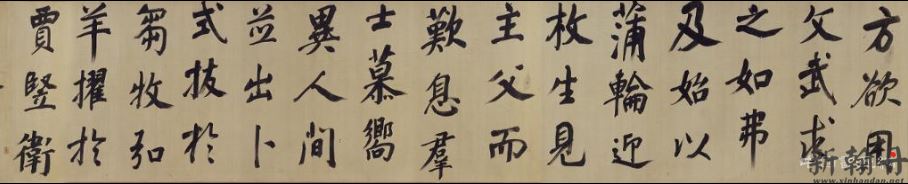 方欲用
文武求
之如弗
及始以
蒲輪迎
枚生見
主父而
歎息羣
士慕嚮
異人間
並出卜
式拔於
芻牧弘
羊擢於
賈豎衛
新翰丹
www.xinhandan.net